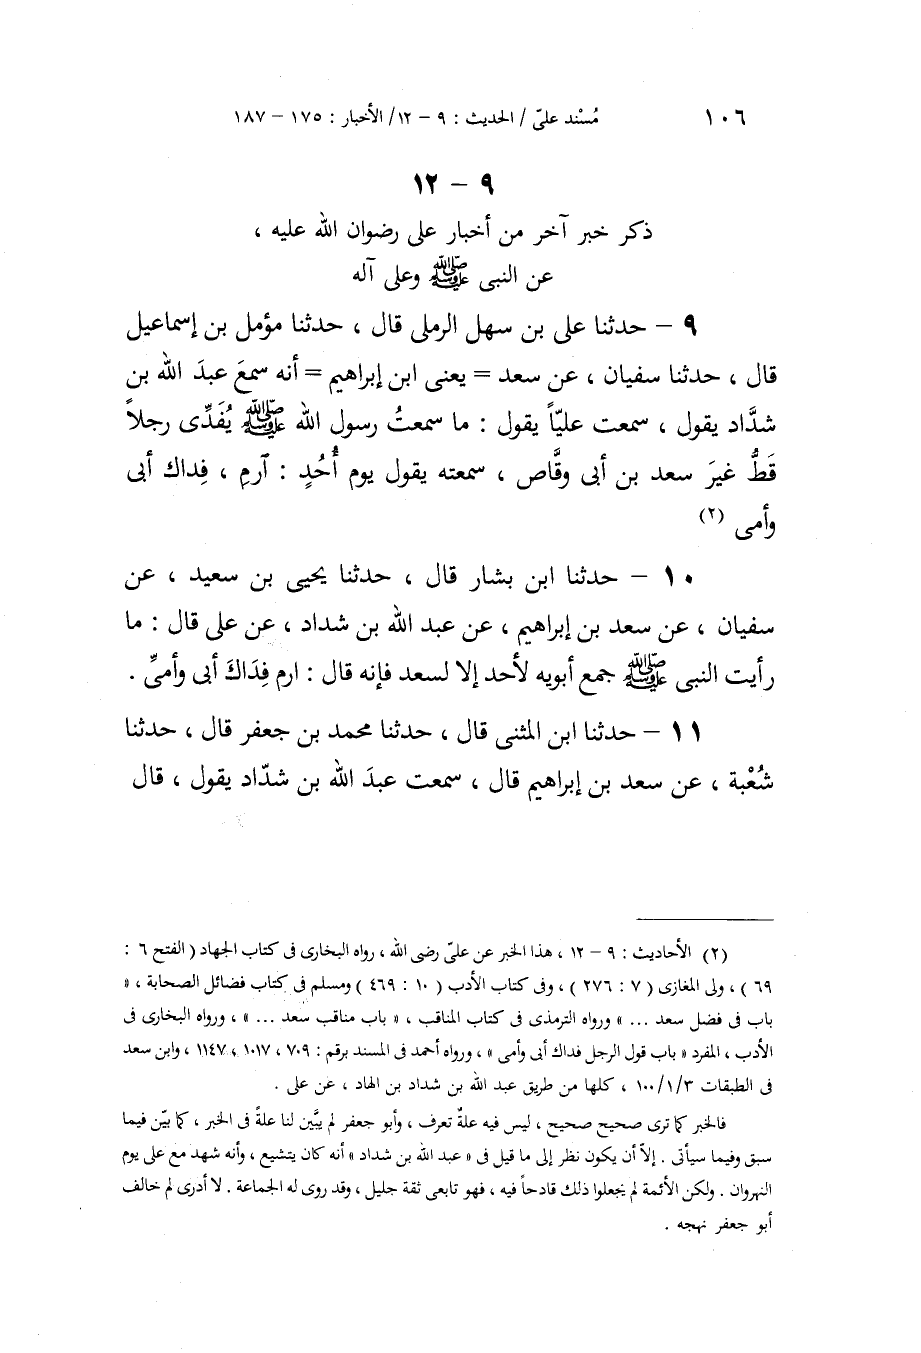 ١٠٦ مُسْند علىّ / الحديث : ٩ – ١٢/ الأخبار : ١٧٥ – ١٨٧
٩ – ١٢
ذكر خبر آخر من أخبار على رضوان الله عليه ،
عن النبى ﷺ وعلى آله
٩ – حدثنا على بن سهل الرملى قال ، حدثنا مؤمل بن إسماعيل
قال ، حدثنا سفيان ، عن سعد = يعنى ابن إبراهيم = أنه سمعَ عبدَ الله بن
شدَّاد يقول ، سمعت عليّاً يقول : ما سمعتُ رسول الله ﷺ يُفَدِّى رجلاً
قَطُّ غيرَ سعد بن أبى وقَّاص ، سمعته يقول يوم أُحُدٍ : آرمِ ، فِداك أبى
وأمى (٢)
١٠ – حدثنا ابن بشار قال ، حدثنا يحيى بن سعيد ، عن
سفيان ، عن سعد بن إبراهيم ، عن عبد الله بن شداد ، عن على قال : ما
رأيت النبى ﷺ جمع أبويه لأحد إلا لسعد فإنه قال : ارم فِدَاكَ أبى وأمىِّ .
١١ – حدثنا ابن المثنى قال ، حدثنا محمد بن جعفر قال ، حدثنا
شُعْبة ، عن سعد بن إبراهيم قال ، سمعت عبدَ الله بن شدّاد يقول ، قال
(٢) الأحاديث : ٩ – ١٢ ، هذا الخبر عن علىّ رضى الله ، رواه البخارى فى كتاب الجهاد ( الفتح ٦ :
٦٩ ) ، ولى المغازى ( ٧ : ٢٧٦ ) ، وفى كتاب الأدب ( ١٠ : ٤٦٩ ) ومسلم فى كتاب فضائل الصحابة ، «
باب فى فضل سعد ... » ورواه الترمذى فى كتاب المناقب ، « باب مناقب سعد ... » ، ورواه البخارى فى
الأدب ، المفرد « باب قول الرجل فداك أبى وأمى » ، ورواه أحمد فى المسند برقم : ٧٠٩ ، ١٠١٧ ، ١١٤٧ ، وابن سعد
فى الطبقات ١٠٠/١/٣ ، كلها من طريق عبد الله بن شداد بن الهاد ، عن على .
فالخبر كما ترى صحيح صحيح ، ليس فيه علةٌ تعرف ، وأبو جعفر لم يبَّين لنا علةً فى الخبر ، كما بيّن فيما
سبق وفيما سيأتى . إلاّ أن يكون نظر إلى ما قيل فى « عبد الله بن شداد » أنه كان يتشيع ، وأنه شهد مع على يوم
النهروان . ولكن الأئمة لم يجعلوا ذلك قادحاً فيه ، فهو تابعى ثقة جليل ، وقد روى له الجماعة . لا أدرى لم خالف
أبو جعفر نهجه .